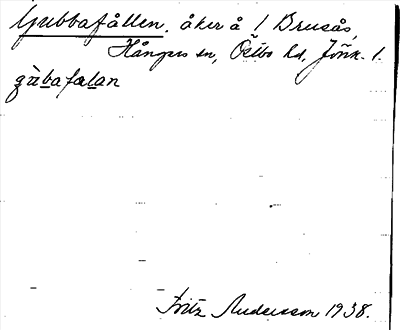 Gubbafållen, åker å 1 Brusås,
Hångers sn, Östbo hd, Jönk. l.
gùbafalan
Fritz Andersson 1938.